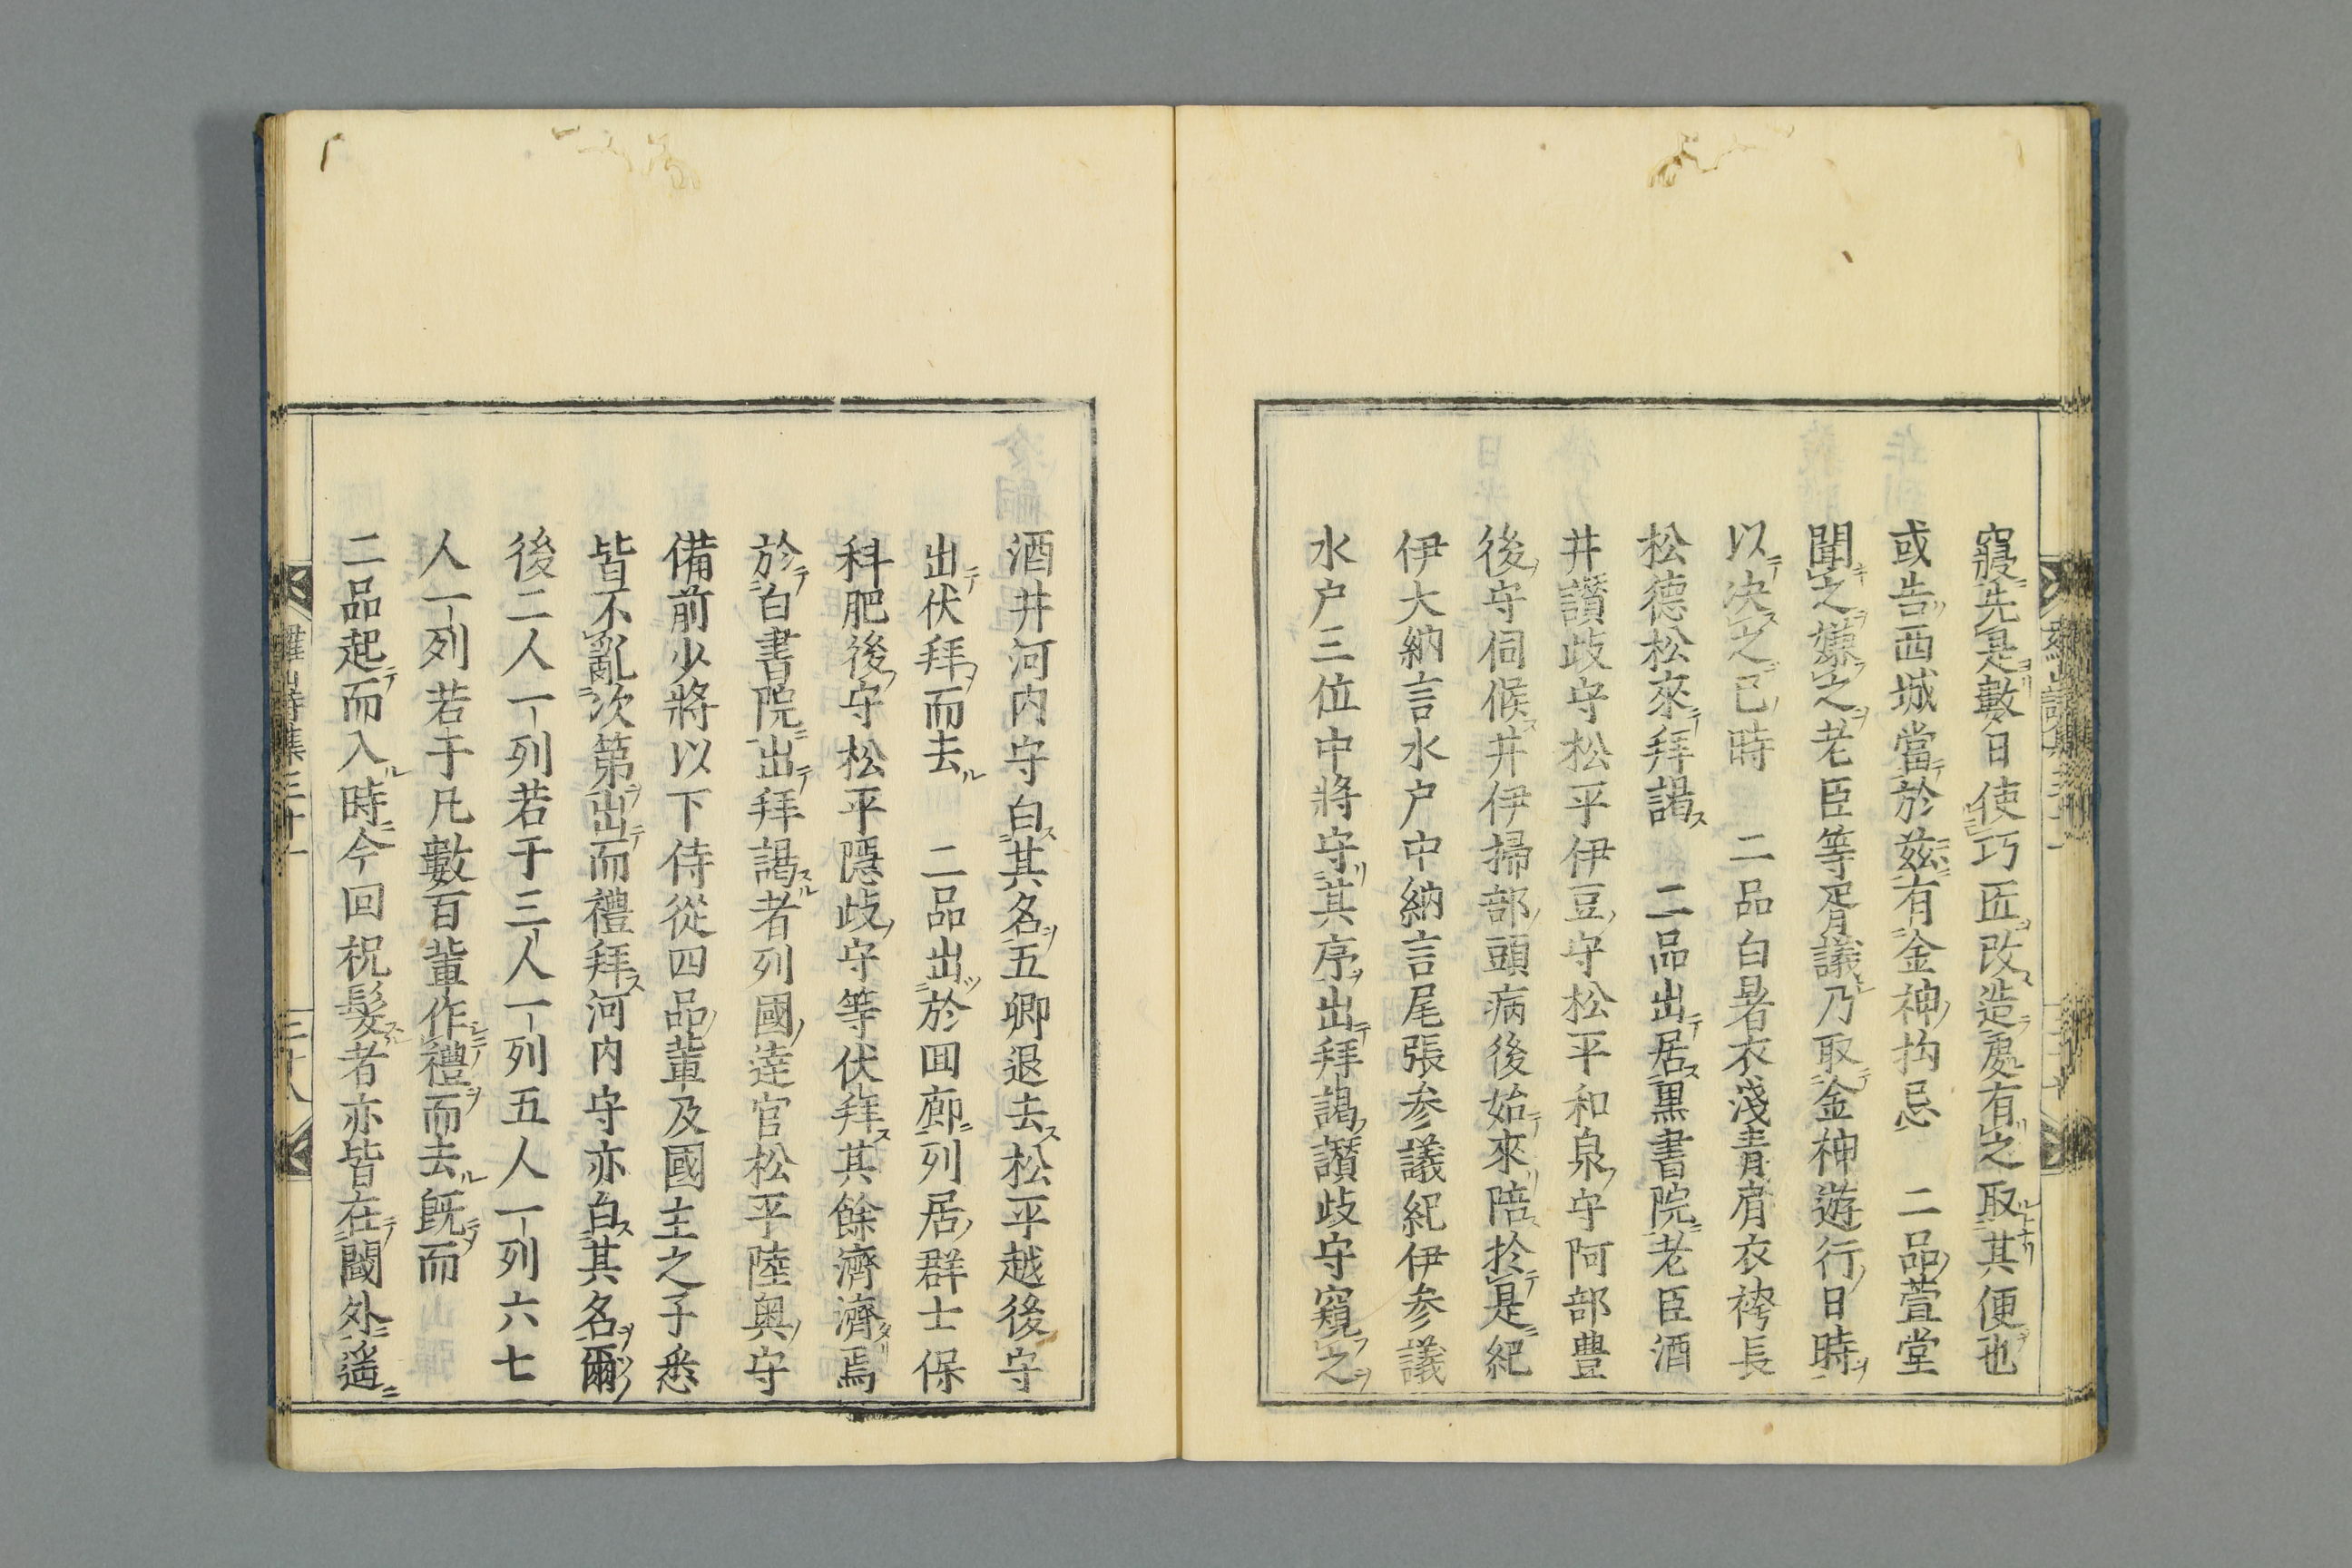 寢先是數日使巧匠改造處有之取其便也
或告西城當於茲有金神拘忌　二品萱堂
聞之嫌之老臣等胥議乃取金神遊行日時
以决之已時　二品白暑衣淺青肩衣袴長
松德松來拜謁　二品出居黒書院老臣酒
井讃歧守松平伊豆守松平和泉守阿部豊
後守伺候井伊掃部頭病後始來陪於是紀
伊大納言水户中納言尾張参議紀伊参議
水户三位中將守其序出拜謁讃歧守窺之
酒井河内守白其名五卿退去松平越後守
出伏拜而去　二品出於囬廊列居群士保
科肥後守松平隱歧守等伏拜其餘濟濟焉
於白書院出拜謁者列國達官松平陸奥守
備前少將以下侍從四品輩及國主之子悉
皆不亂次第出而禮拜河内守亦白其名爾
後二人一列若于三人一列五人一列六七
人一列若于凡數百輩作禮而去既而
二品起而入時今回祝髮者亦皆在閾外遥
羅山詩集三十一
三十八